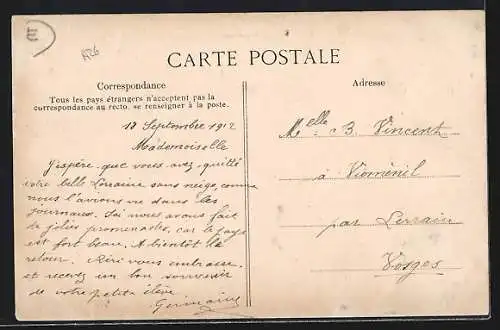 CARTE POSTALE
Correspondance
Tous les pays étrangers n'acceptent pas la
correspondance au recto, se renseigner à la poste.
Adresse
18 Septembre 1912
Mademoiselle
J'espère que vous avez quitté
votre belle Lorraine sans neige, comme
nous l'avions vu dans les
journaux. Ici nous avons fait
de jolies promenades, car le pays
est fort beau. A bientôt le
retour. Riri vous embrasse,
et recevez un bon souvenir
de votre petite élève.
Germaine
Melle B. Vincent
à Vioménil
par Lerrain
Vosges